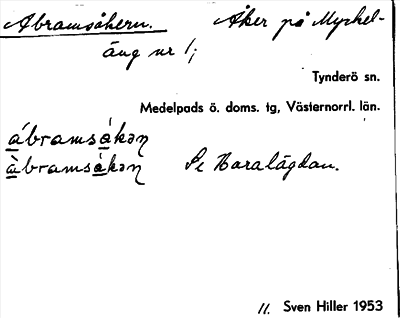 Abramsåkern. Åker på Myckel-
äng nr 1;
Tynderö sn.
Medelpads ö. doms. tg, Västernorrl. län.
ábramsåkəɳ
àbramsàkəɳ Se Haralägdan.
11. Sven Hiller 1953